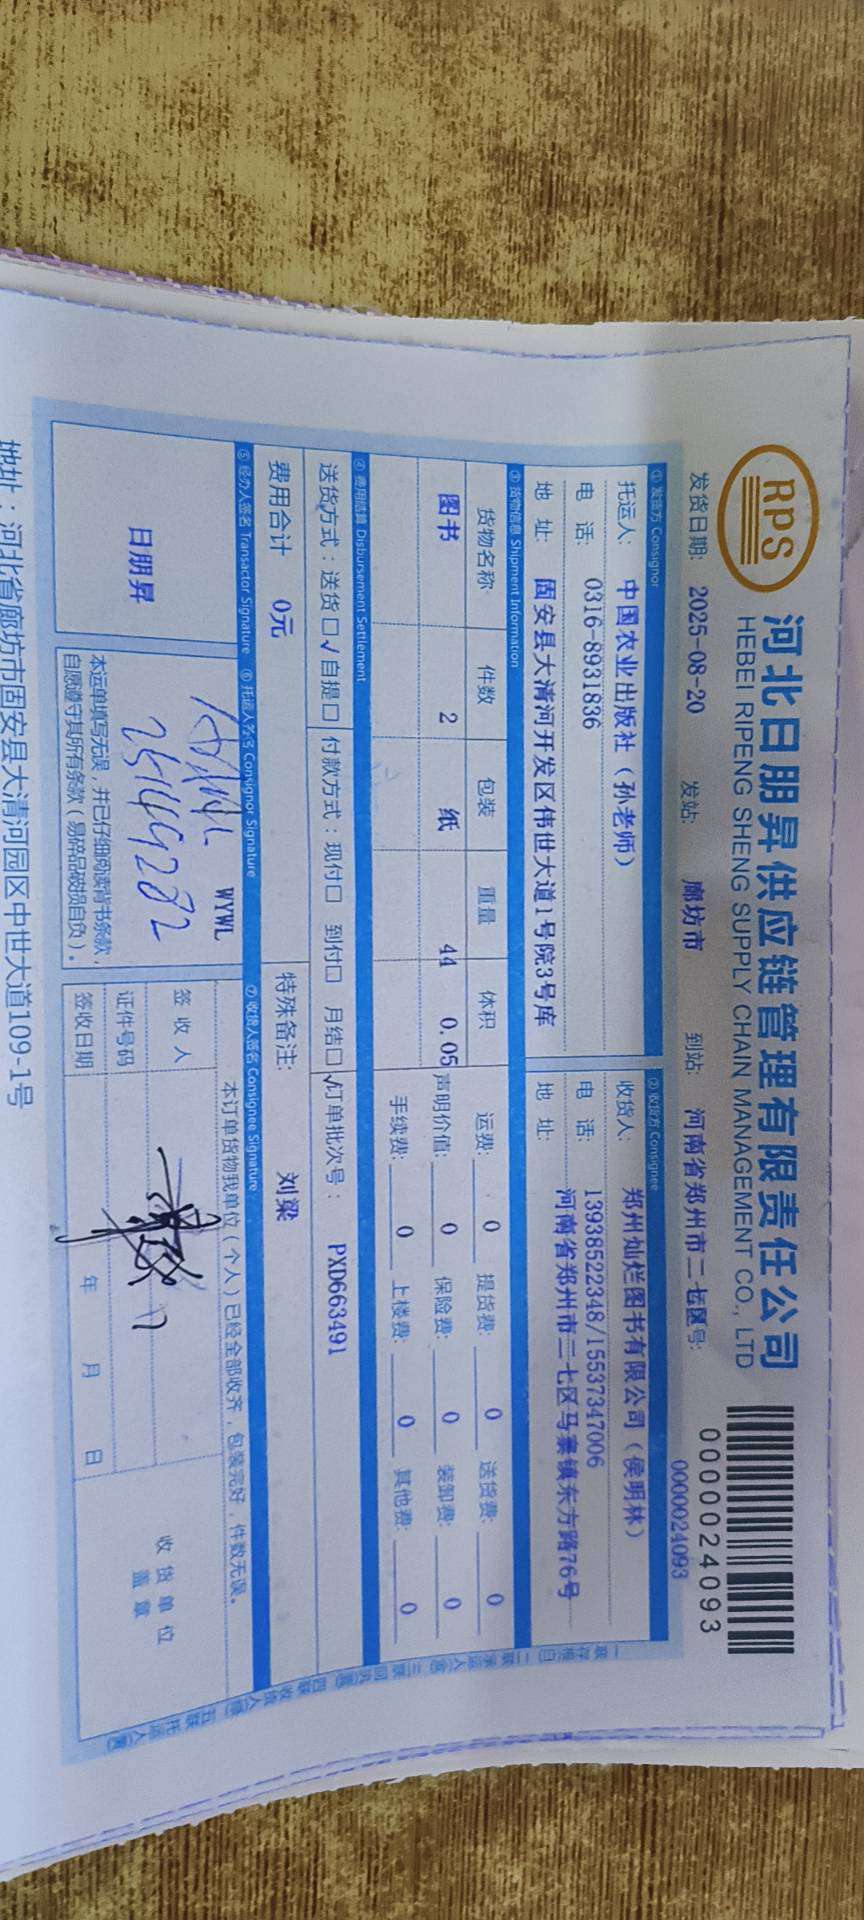 RPS
河北日朋昇供应链管理有限责任公司
HEBEI RIPENG SHENG SUPPLY CHAIN MANAGEMENT CO., LTD
0000024093
0000024093
发货日期: 2025-08-20 发站: 廊坊市 到站: 河南省郑州市二七区 号:
① 发货方 Consignor ② 收货方 Consignee
托运人: 中国农业出版社（孙老师） 收货人: 郑州灿烂图书有限公司（侯明林）
电 话: 0316-8931836 电 话: 13938522348/15537347006
地 址: 固安县大清河开发区伟世大道1号院3号库 地 址: 河南省郑州市二七区马寨镇东方路76号
③ 货物信息 Shipment Information
货物名称 件数 包装 重量 体积 运费: 0 提货费: 0 送货费: 0
图书 2 纸 44 0.05 声明价值: 0 保险费: 0 装卸费: 0
手续费: 0 上楼费: 0 其他费: 0
④ 费用结算 Disbursement Settlement
送货方式：送货 □√ 自提 □ 付款方式：现付□ 到付□ 月结□√ 订单批次号： PXD663491
费用合计 0元 特殊备注: 刘梁
⑤ 经办人签名 Transactor Signature ⑥ 托运人签名 Consignor Signature ⑦ 收货人签名 Consignee Signature
日朋昇
WYWL
本运单填写无误，并已仔细阅读背书条款，
自愿遵守其所有条款（易碎品破损自负）。
本订单货物我单位（个人）已经全部收齐，包装完好，件数无误。
签 收 人
证件号码
签收日期 年 月 日
收 货 单 位
盖 章
地址：河北省廊坊市固安县大清河园区中世大道109-1号